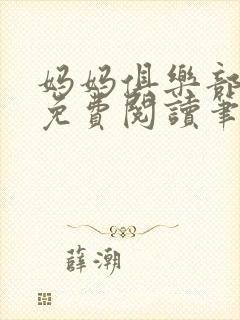 妈妈俱樂部
免費閱讀筆
薛潮